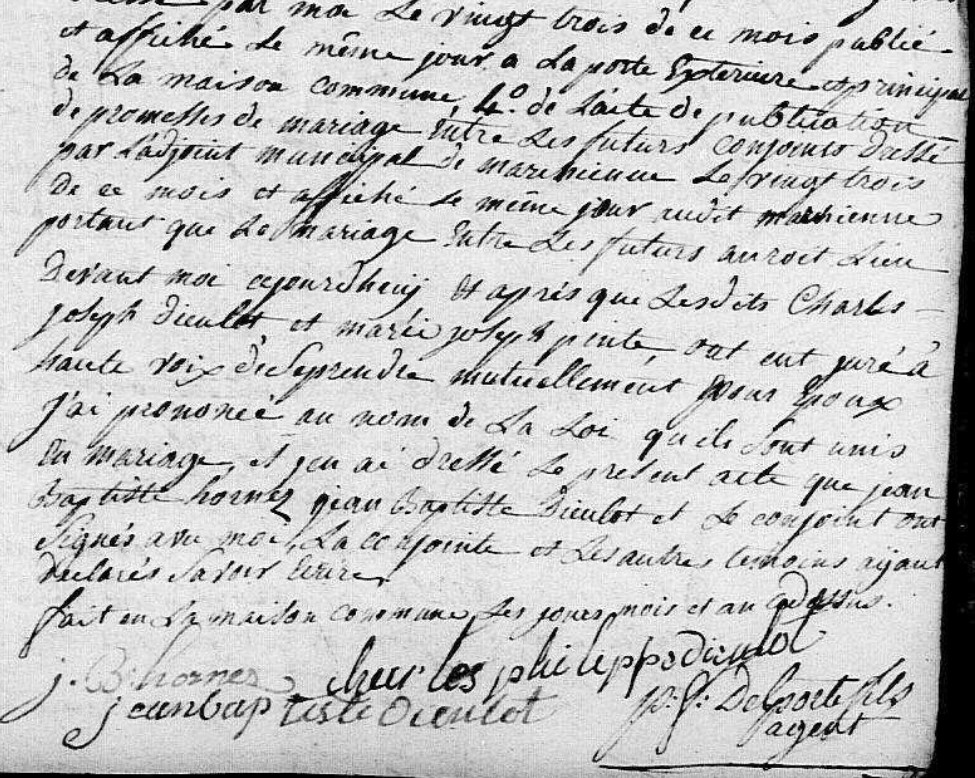 par moi Le vingt trois de ce mois publié
et affiché Le même jour a La porte Exterieure et principale
de La maison commune, 4.º de L'acte de publication
de promesses de mariage Entre Les futurs conjoints dressé
par L'adjoint municipal de marchienne Le vingt trois
de ce mois et affiché Le même jour audit marchienne
portant que Le mariage Entre Les futurs auroit Lieu
Devant moi cejourdhuij Et aprés que Lesdits Charles
joseph Dieulot et marie joseph pinte, ont eut juré à
haute voix de Se prendre mutuellement pour Epoux
J'ai prononcé au nom de La Loi quils Sont unis
En mariage, et j'en ai dressé Le present acte que jean
Baptiste hornez jean Baptiste Dieulot et Le conjoint ont
Signés avec moi, La conjointe et Les autres temoins aÿant
declarés Savoir Ecrire,
fait en La maison commune Les jours mois et an cy dessus.
j. B. hornez charles philippe dieulot
jean bap tiste Dieulot p. j. Delporte fils
agent